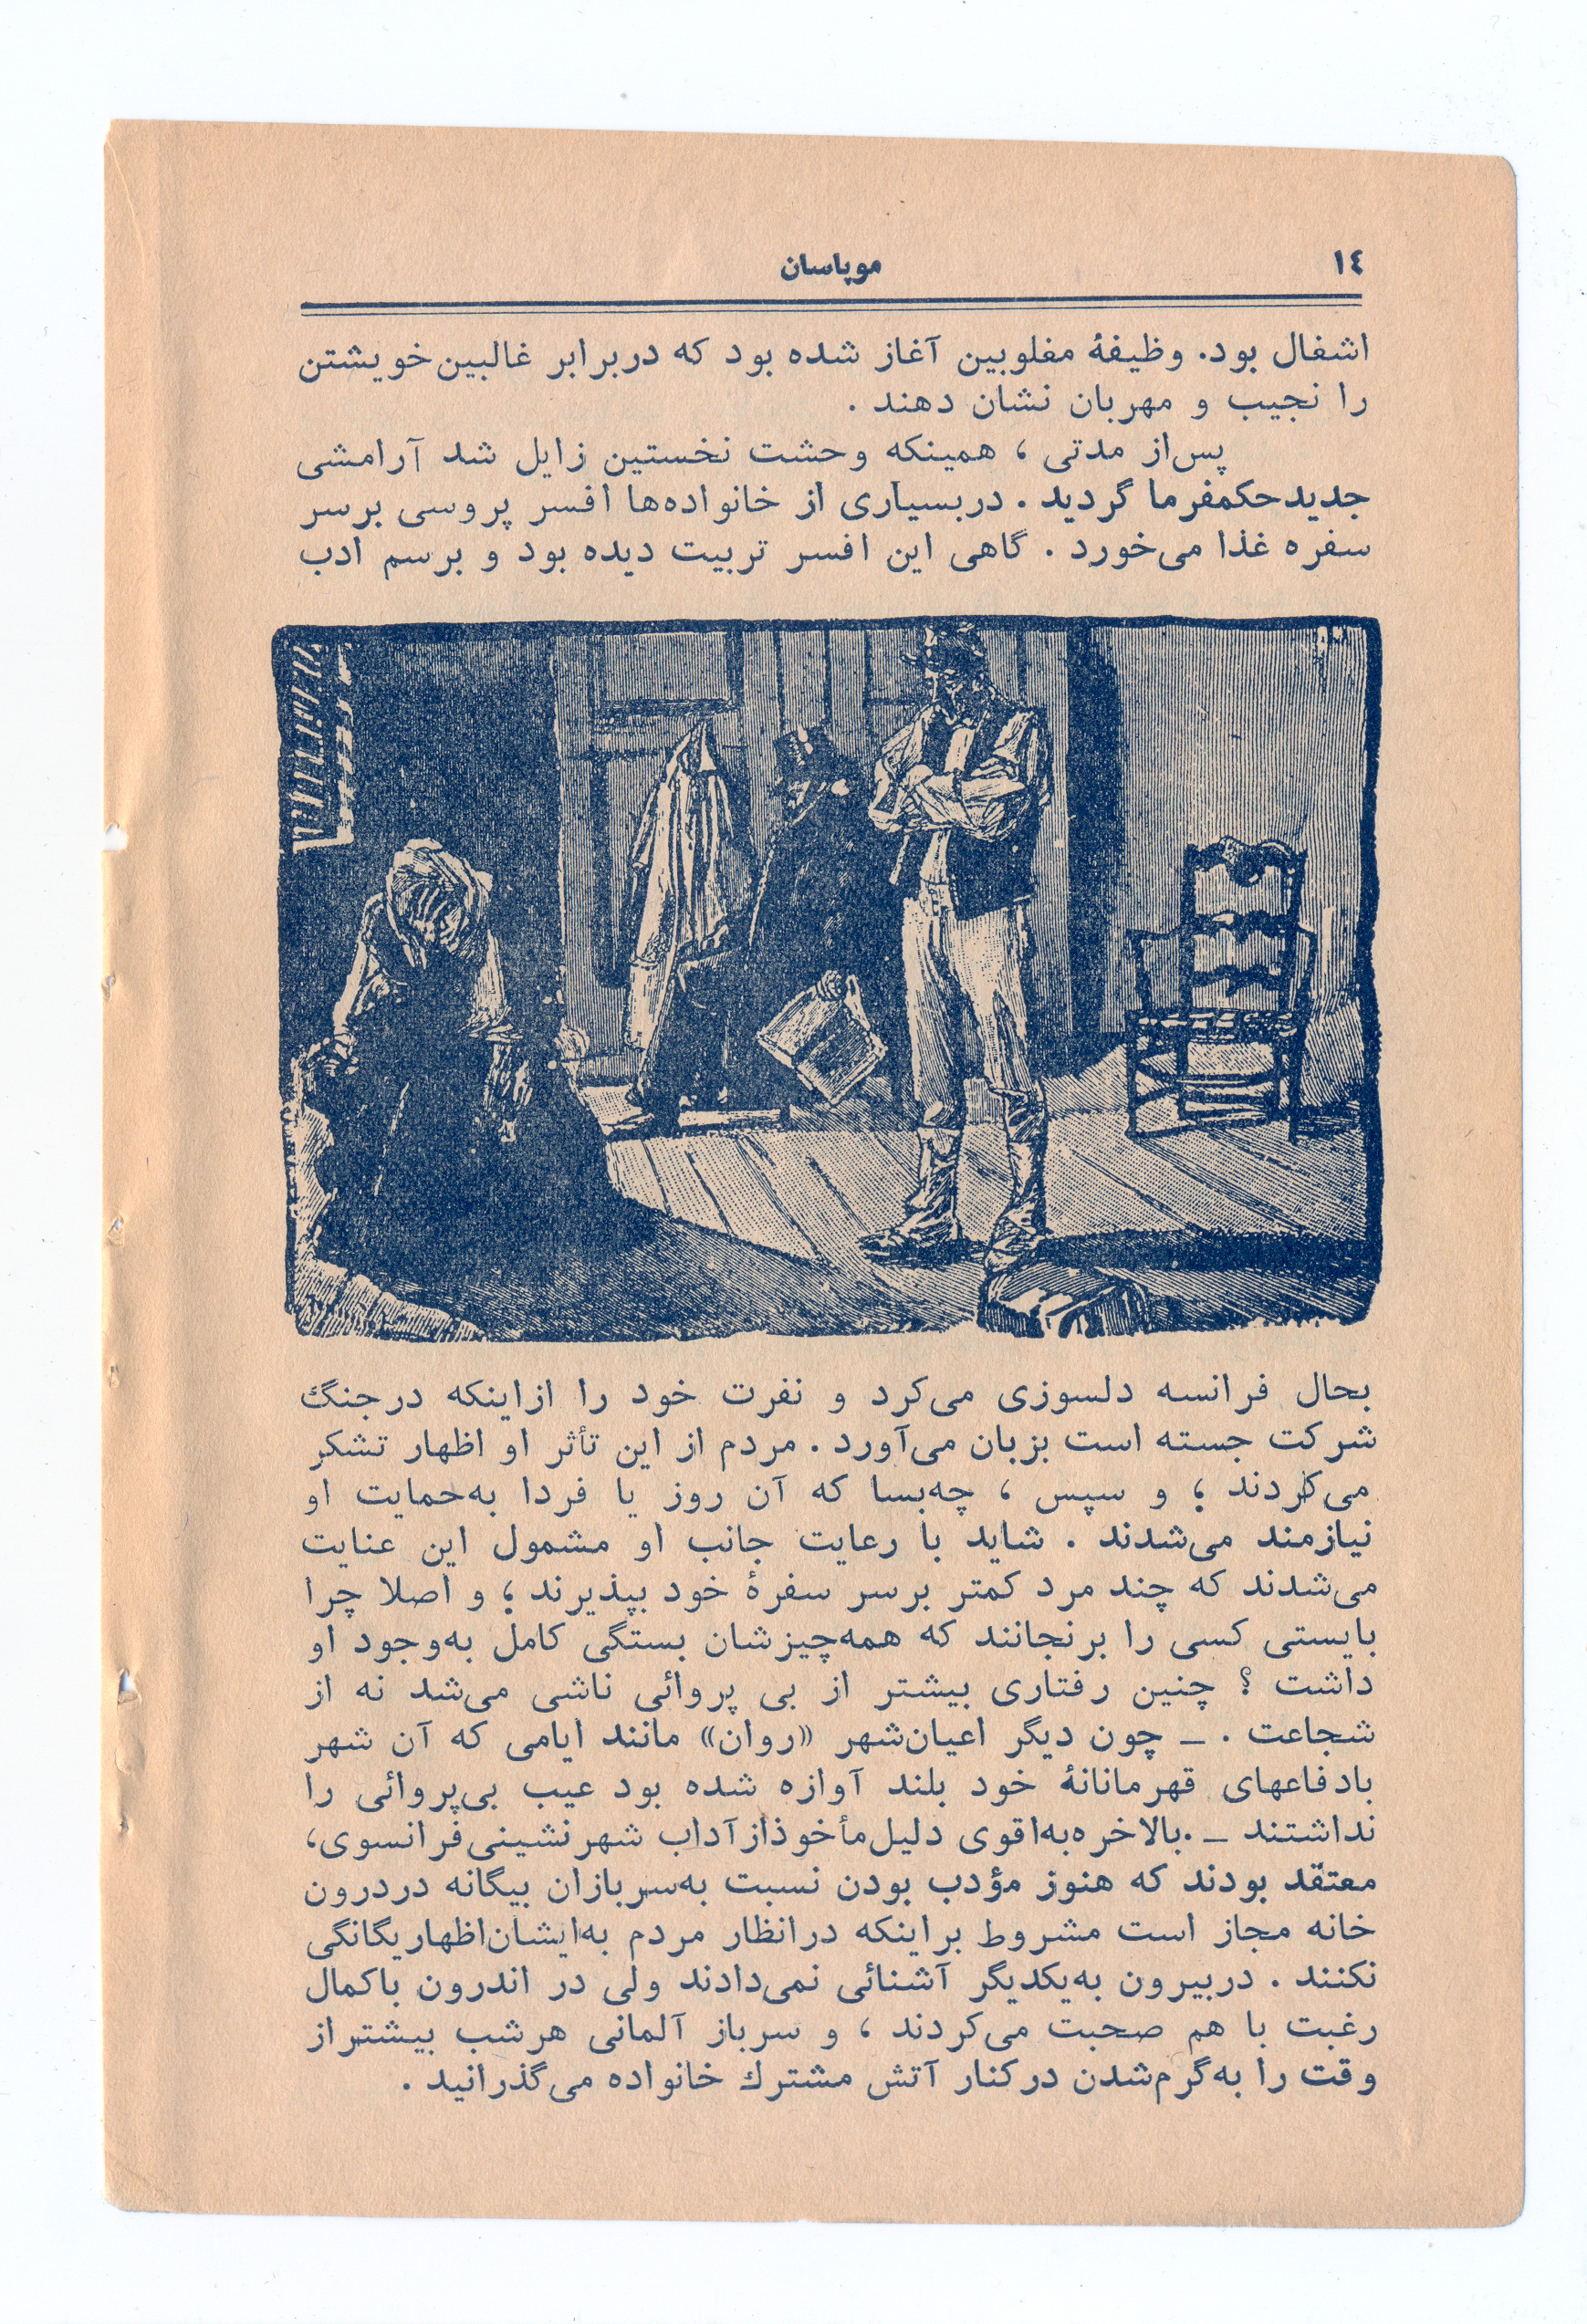 ١٤
موپاسان
اشغال بود. وظیفهٔ مغلوبین آغاز شده بود که دربرابر غالبین خویشتن
را نجیب و مهربان نشان دهند .
پس‌از مدتی ، همینکه وحشت نخستین زایل شد آرامشی
جدید حکمفرما گردید . دربسیاری از خانواده‌ها افسر پروسی برسر
سفره غذا می‌خورد . گاهی این افسر تربیت دیده بود و برسم ادب
بحال فرانسه دلسوزی می‌کرد و نفرت خود را ازاینکه درجنگ
شرکت جسته است بزبان می‌آورد . مردم از این تأثر او اظهار تشکر
می‌کردند ؛ و سپس ، چه‌بسا که آن روز یا فردا به‌حمایت او
نیازمند می‌شدند . شاید با رعایت جانب او مشمول این عنایت
می‌شدند که چند مرد کمتر برسر سفرهٔ خود بپذیرند ؛ و اصلا چرا
بایستی کسی را برنجانند که همه‌چیزشان بستگی کامل به‌وجود او
داشت ؟ چنین رفتاری بیشتر از بی پروائی ناشی می‌شد نه از
شجاعت . ـ چون دیگر اعیان‌شهر «روان» مانند ایامی که آن شهر
بادفاعهای قهرمانانهٔ خود بلند آوازه شده بود عیب بی‌پروائی را
نداشتند ـ .بالاخره‌به‌اقوی دلیل‌مأخوذازآداب شهرنشینی‌فرانسوی،
معتقد بودند که هنوز مؤدب بودن نسبت به‌سربازان بیگانه دردرون
خانه مجاز است مشروط براینکه درانظار مردم به‌ایشان‌اظهاریگانگی
نکنند . دربیرون به‌یکدیگر آشنائی نمی‌دادند ولی در اندرون باکمال
رغبت با هم صحبت می‌کردند ، و سرباز آلمانی هرشب بیشتراز
وقت را به‌گرم‌شدن درکنار آتش مشترك خانواده می‌گذرانید .